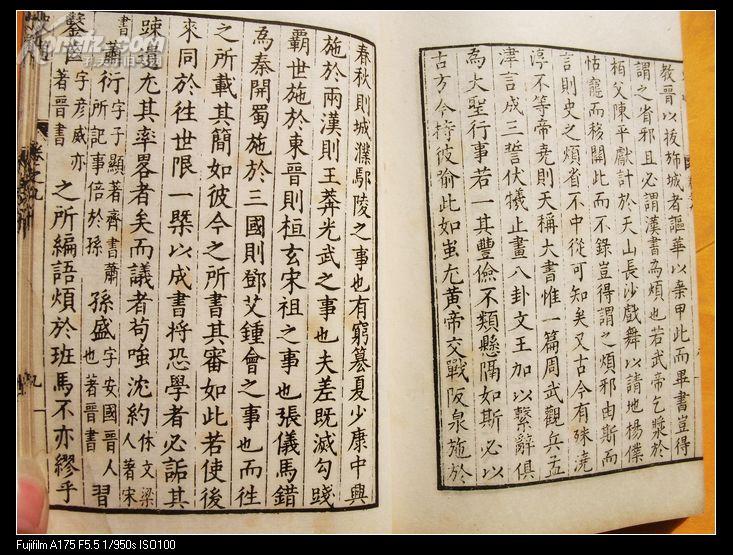 教晉以拔斾城者謳華以棄甲此而畢書豈得
謂之省邪且必謂漢書爲煩也若武帝乞漿於
栢父陳平獻計於天山長沙戲舞以請地楊僕
怙寵而移關此而不錄豈得謂之煩邪由斯而
言則史之煩省不中從可知矣又古今有殊澆
淳不等帝堯則天稱大書惟一篇周武觀兵孟
津言成三誓伏犧止畫八卦文王加以繫辭俱
爲大聖行事若一其豐儉不類懸隔如斯必以
古方今持彼喻此如蚩尤黃帝交戰阪泉施於
春秋則城濮鄢陵之事也有窮簒夏少康中興
施於兩漢則王莽光武之事也夫差既滅勾踐
霸世施於東晉則桓玄宋祖之事也張儀馬錯
爲秦開蜀施於三國則鄧艾鍾會之事也而徃
之所載其簡如彼今之所書其審如此若使後
來同於徃世限一槩以成書將恐學者必詬其
踈遺尤其率畧者矣而議者苟嗤沈約休文梁人著宋
書蕭衍字子顯著齊書蕭所記事倍於孫孫盛字安國晉人也著晉書習
鑿齒字彥威亦著晉書之所編語煩於班馬不亦繆乎
Fujifilm A175 F5.5 1/950s ISO100